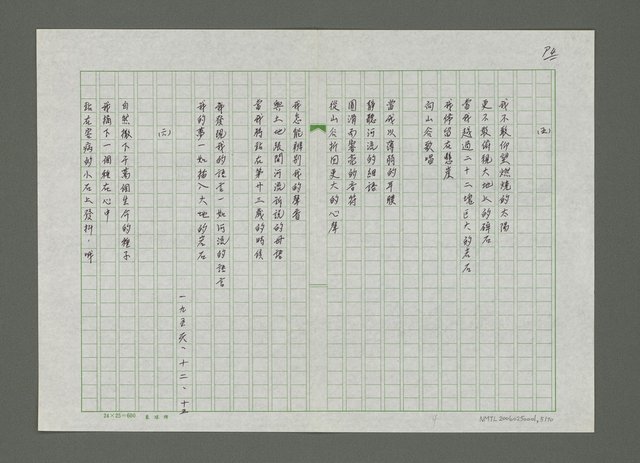 P4
（五）
我不敢仰望燃燒的太陽
更不敢俯視大地上的碎石
當我越過二十二塊巨大的岩石
我停留在懸崖
向山谷歌唱
當我以薄弱的耳膜
靜聽河流的細語
圓滑而響亮的音符
從山谷折回更大的心聲
我怎能辨別我的聲音
與土地張開河流訴說的母語
當我將站在第廿三歲的時候
我發現我的語言一如河流的語言
我的夢一如插入大地的岩石
一九五六、十二、十五
（六）
自然撒下千萬個生命的種子
我摘下一個種在心中
站在害病的小石上發抖，哪
24×25=600
4
NMTL20060250001